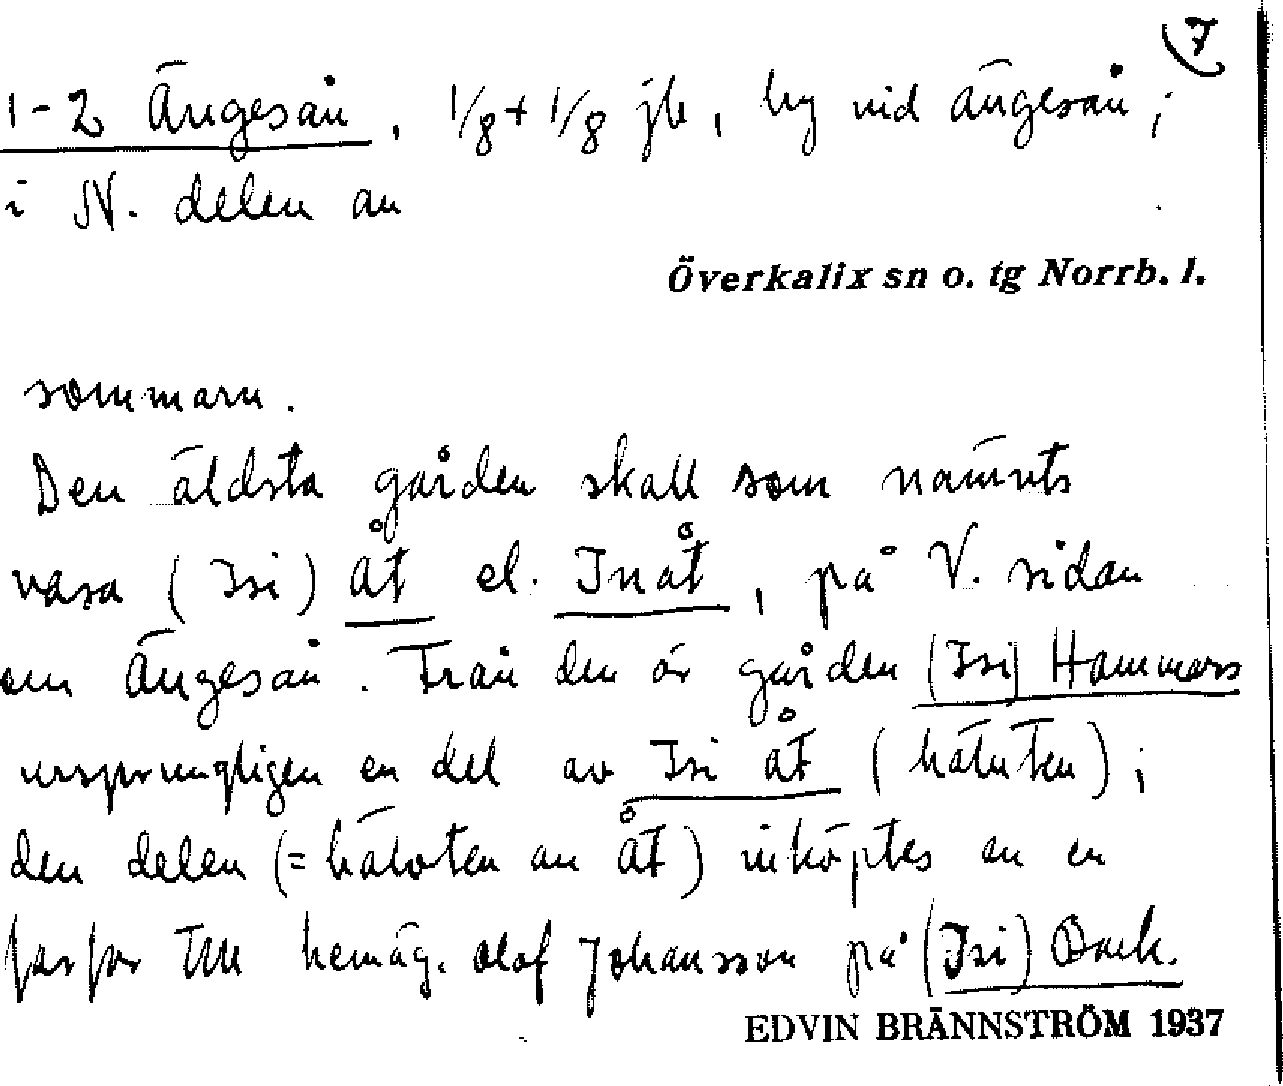 7
1-2 Ängesån, 1/8 + 1/8 jb, by vid Ängesån;
i N. delen av
Överkalix sn o. tg Norrb. l.
sommarn.
Den äldsta gården skall som nämnts
vara (Isi) åt el. Inåt, på V. sidan
om Ängesån. Från den är gården (Isi) Hammars
ursprungligen en del av Isi åt (hälvten);
den delen (= hälvten av åt) inköptes av en
farfar till hemäg. Olof Johansson på (Isi) Back.
EDVIN BRÄNNSTRÖM 1937